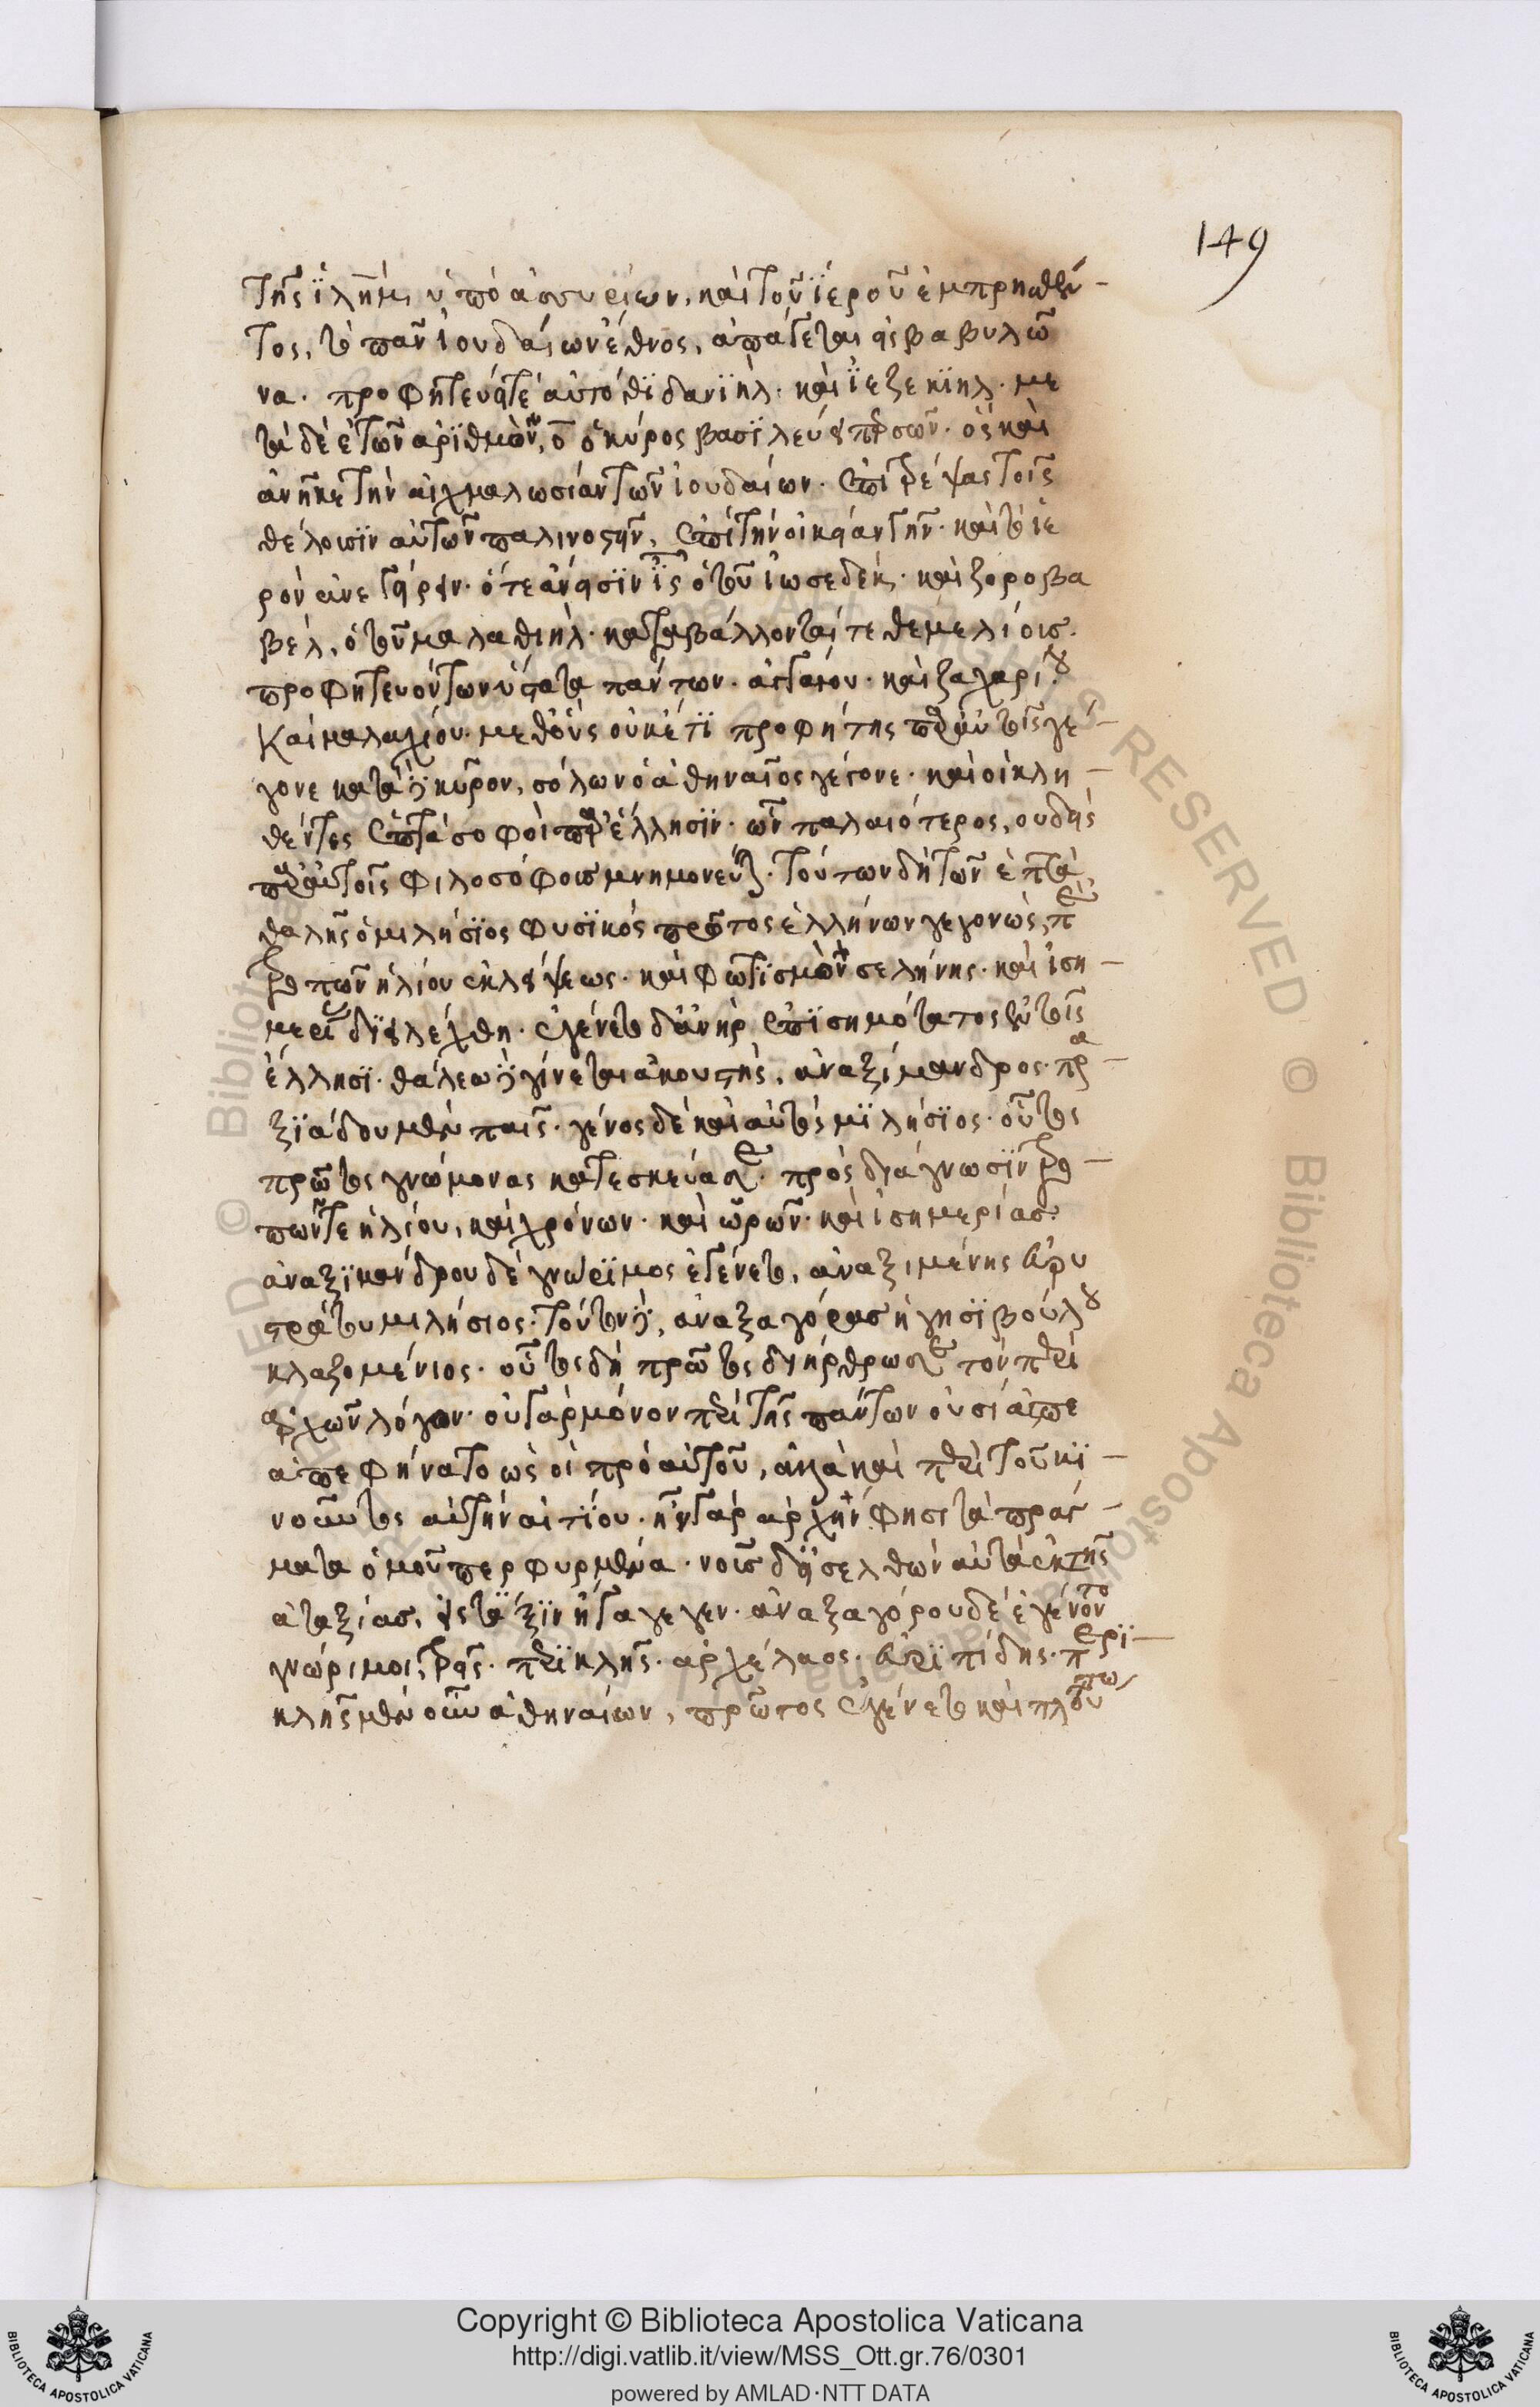 149
τῆς ἰλῆμ, ὑπὸ ἀσσυρίων, καὶ τοῦ ἱεροῦ ἐμπρησθέν-
τος, τὸ πᾶν ἰουδαίων ἔθνος, ἀπάγεται εἰς βαβυλῶ
να. προφητεύει τὲ αὐτόθϊ δανϊὴλ. καὶ ἰεζεκϊὴλ. με
τὰ δὲ ἐτῶν ἀρϊθμὸν, ο̅ ὁ κύρος βασϊλεύει περσῶν. ὃς καὶ
ἀνῆκε τὴν αἰχμαλωσίαν τῶν ἰουδαίων. ἐπιτρέψας τοῖς
θέλουσϊν αὐτῶν παλινοστεῖν, ἐπὶ τὴν οἰκείαν γῆν. καὶ τὸ ἱε
ρὸν ἀνεγείρειν. ὅτε ἄνεισϊν ἰς̅ ὁ τοῦ ἰωσεδὲκ. καὶ ζοροβα
βὲλ, ὁ τοῦ μαλαθιὴλ. καταβάλλονταί τε θεμελίους.
προφητευόντων ὕστατα πάντων. ἀγγαίου. καὶ ζαχαρίου.
καὶ μαλαχίου. μεθ' οὓς οὐκέτϊ προφήτης παρ' αὐτοῖς γέ-
γονε κατὰ δὲ κῦρον, σόλων ὁ ἀθηναῖος γέγονε. καὶ οἱ κλη-
θέντες ἑπτὰ σοφοὶ παρ' ἕλλησϊν. ὧν παλαιότερος, οὐδεὶς
παρ' αὐτοῖς φιλοσόφοις μνημονεύεται. τούτων δὴ τῶν ἑπτὰ,
θαλῆς ὁ μιλήσϊος φυσϊκὸς πρῶτος ἑλλήνων γεγονὼς, περὶ
τροπῶν ἡλίου ἐκλείψεως. καὶ φωτϊσμὸν σελήνης. καὶ ἰση-
μερίας δϊελέχθη. ἐγένετο δ' ἀνὴρ ἐπϊσημότατος ἐν τοῖς
ἕλλησϊ. θάλεω δὲ γίνεται ἀκουστὴς, ἀναξίμανδρος. πρα-
ξϊάδου μὲν παῖς. γένος δὲ καὶ αὐτὸς μϊλήσϊος. οὗτος
πρῶτος γνώμονας κατεσκεύασε. πρὸς διάγνωσϊν τρο-
πῶν τε ἡλίου, καὶ χρόνων. καὶ ὡρῶν. καὶ ἰσημερίας.
ἀναξϊμάνδρου δὲ γνώρϊμος ἐγένετο, ἀναξιμένης εὐρυ
στράτου μιλήσιος. τούτου δὲ, ἀναξαγόρας ἡγησϊβούλου
κλαζομένιος. οὗτος δὴ πρῶτος διήρθρωσε τὸν περὶ
ἀρχῶν λόγον. οὐ γὰρ μόνον περὶ τῆς πάντων οὐσίας
ἀπεφήνατο ὡς οἱ πρὸ αὐτοῦ, ἀλλὰ καὶ περὶ τοῦ κϊ-
νοῦντος αὐτὴν αἰτίου. ἦν γὰρ ἀρχὴν φησι τὰ πράγ-
ματα ὁμοῦ πεφυρμένα. νοῦς δὲ εἰσελθὼν αὐτὰ ἐκ τῆς
ἀταξίας, εἰς τάξϊν ἤγαγεν. ἀναξαγόρου δὲ ἐγένοντο
γνώριμοι, τρεῖς. περϊκλῆς. ἀρχέλαος. εὐρϊπίδης. περϊ-
κλῆς μὲν οὖν ἀθηναίων, πρῶτος ἐγένετο καὶ πλούτω
Copyright © Biblioteca Apostolica Vaticana
http://digi.vatlib.it/view/MSS_Ott.gr.76/0301
powered by AMLAD·NTT DATA